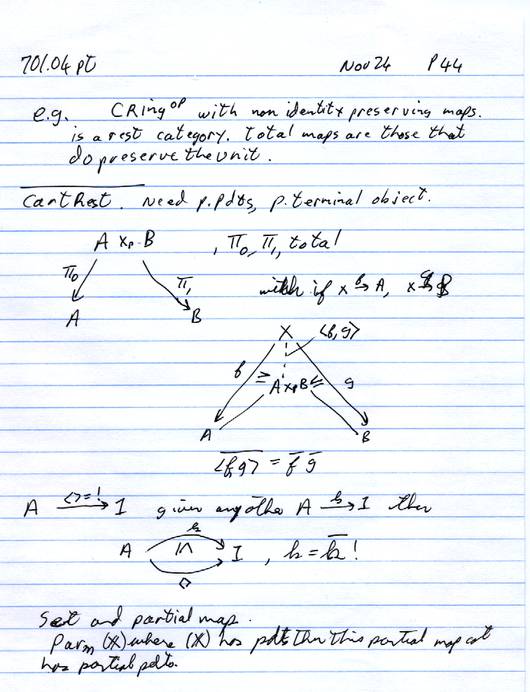 701.04 pt Nov 24 P 44
e.g. CRing^op with non identity preserving maps.
is a rest category. Total maps are those that
do preserve the unit.
Cart Rest. Need p. pdts, p. terminal object.
A ×p B , π₀, π₁, total
π₀ π₁
A B with if x → A, x → B
X ⟨f,g⟩
f ≥ A×pB ≤ g
A B
⟨f,g⟩ = f̄ ḡ
A ⟨⟩=! → I given any other A k→ I then
k
A I , k = k̄ !
⟨⟩
Set and partial map.
Par_m (X) where (X) has pdts then this partial map cat
has partial pdts.